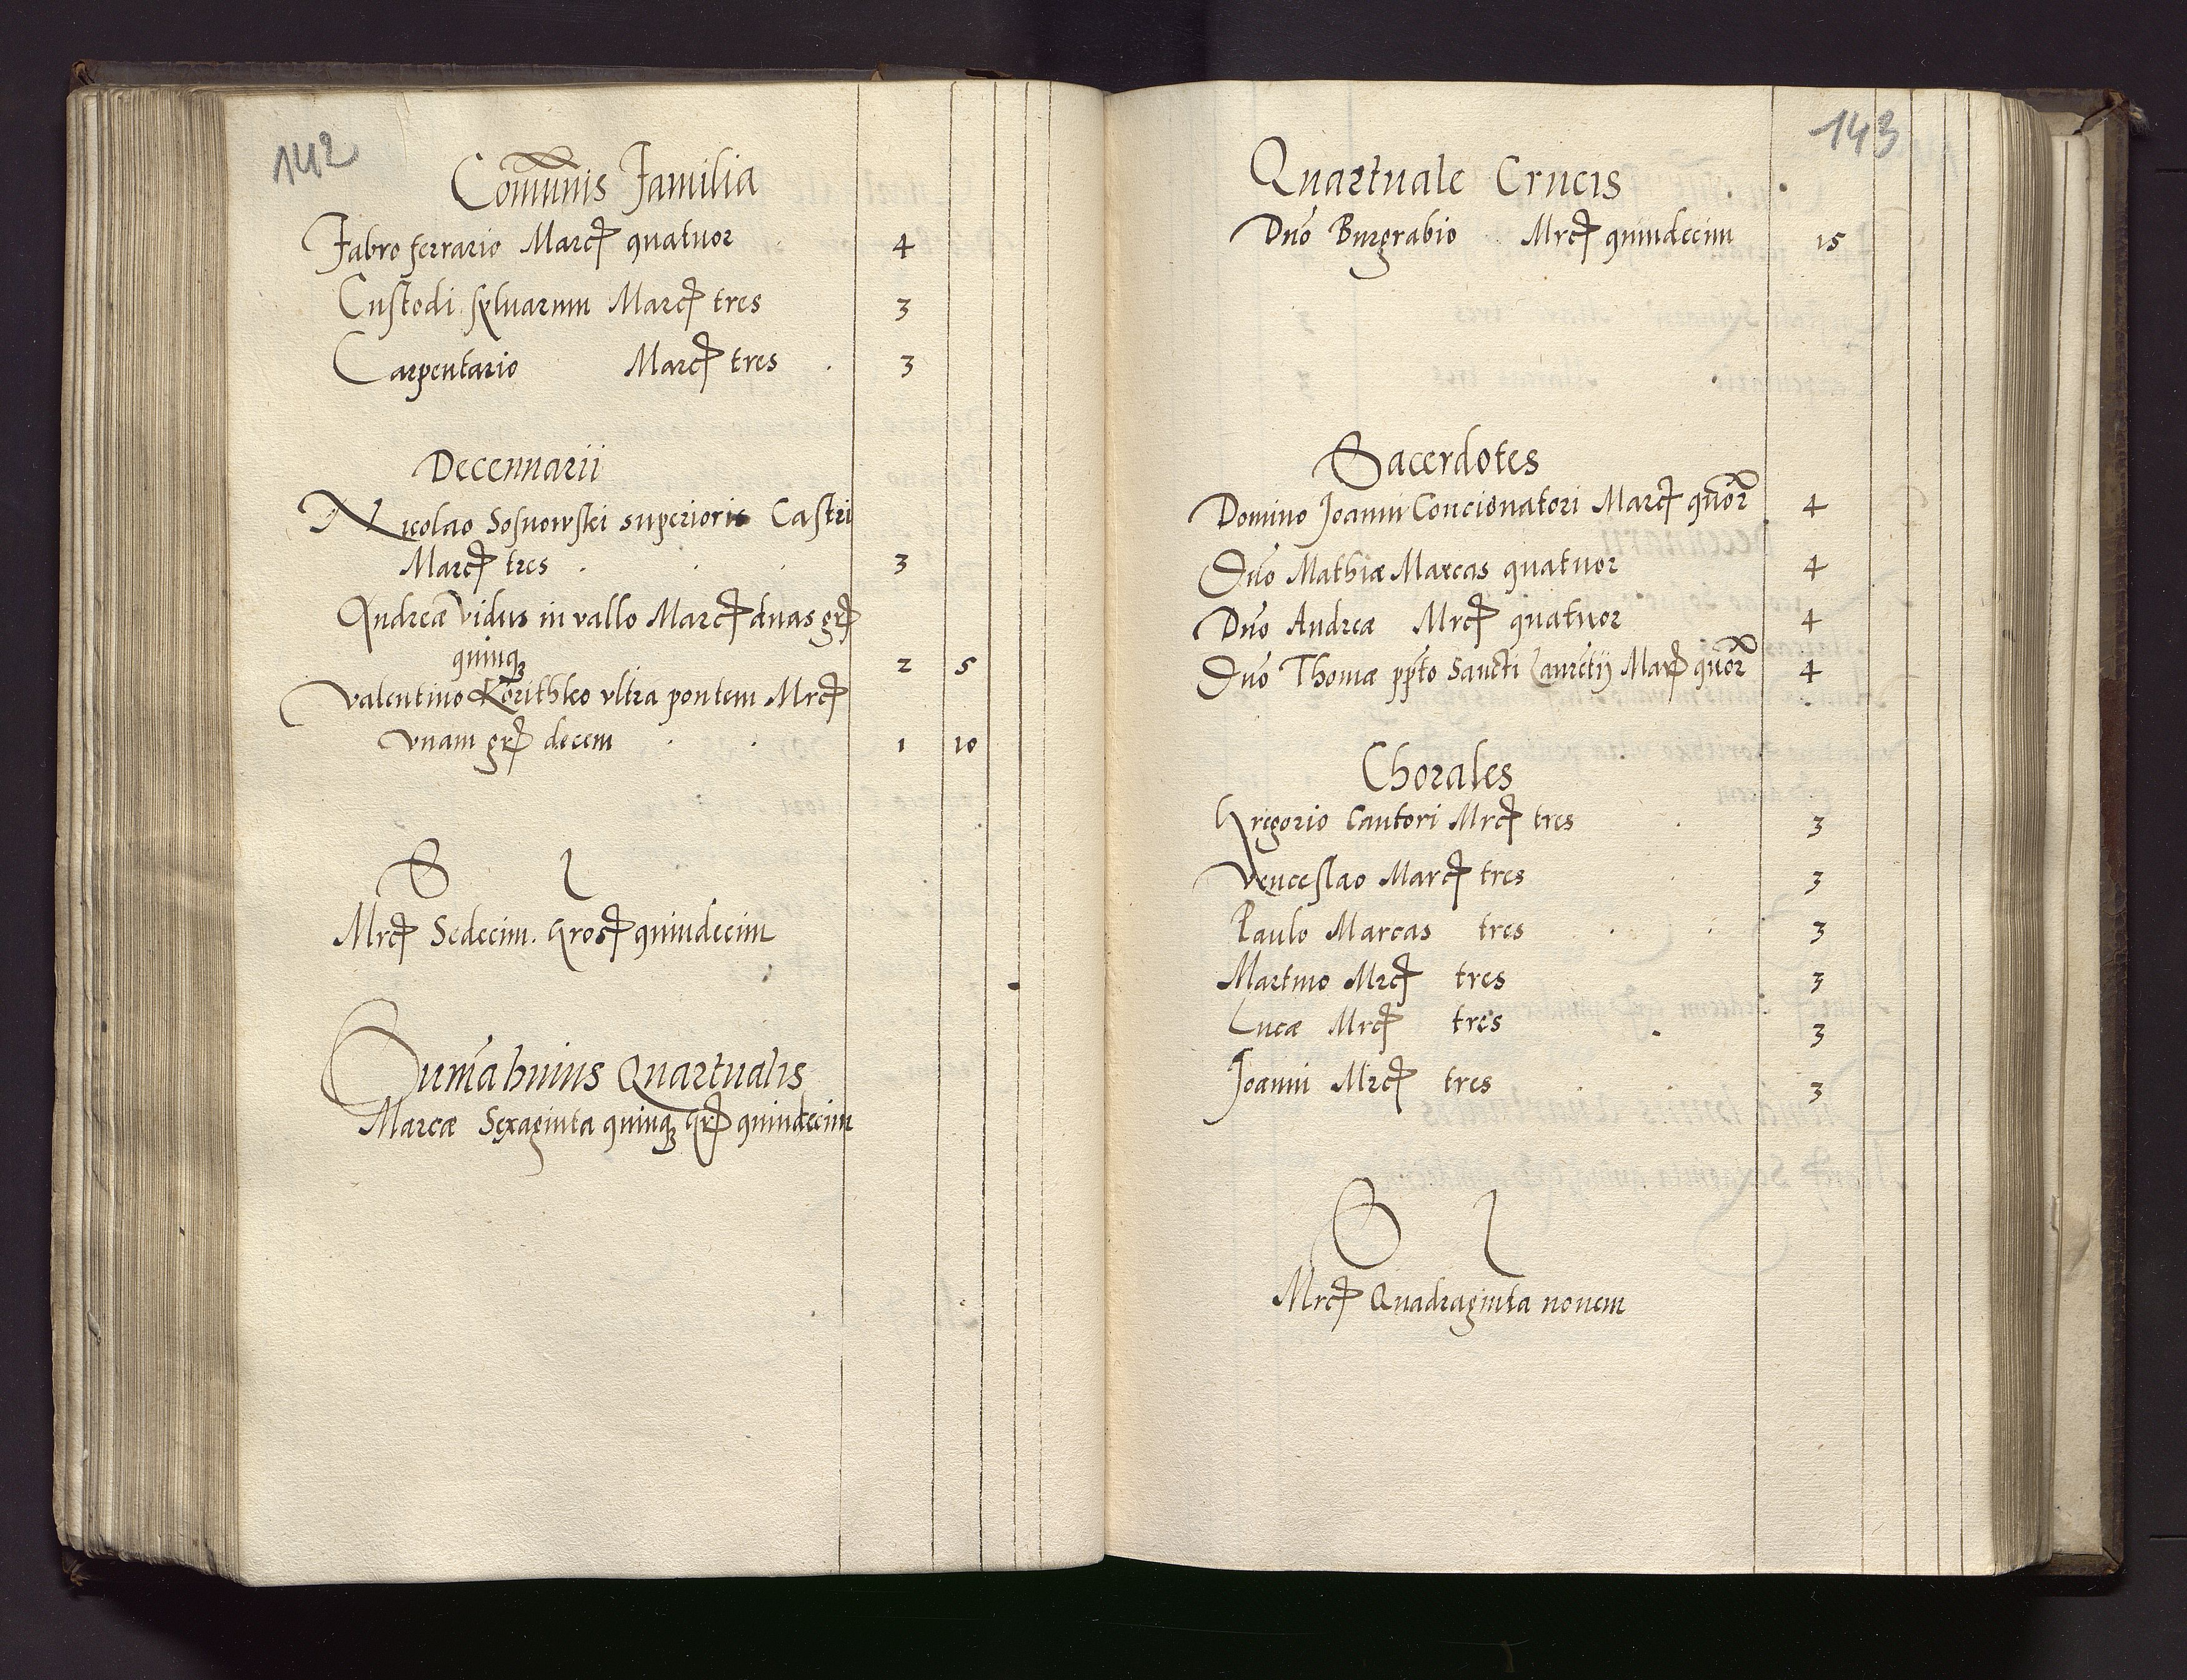 142
Com̃unis Familia
Fabro ferrario Marcꝭ quatuor 4
Custodi syluarum Marcꝭ tres 3
Carpentario Marcꝭ tres 3
Decennarii
Nicolao Sosnowski superioris Castri
Marcꝭ tres 3
Andreæ vidus in vallo Marcꝭ duas grꝭ
quinqꝫ 2 5
Valentino Korithko vltra pontem Mrcꝭ
vnam grꝭ decem 1 10
S l
Mrcꝭ Sedecim. Grosꝭ quindecim
Sum̃a huius Quartualis
Marcæ Sexaginta quinqꝫ Grꝭ quindecim
143
Quartuale Crucis
Dño Burgrabio Mrcꝭ quindecim 15
Sacerdotes
Domino Joanni Concionatori Marcꝭ quõr 4
Dño Mathiæ Marcas quatuor 4
Dño Andreæ Mrcꝭ quatuor 4
Dño Thomæ pp̃to Sancti Laurẽtij Marꝭ quõr 4
Chorales
Gregorio Cantori Mrcꝭ tres 3
Venceslao Marcꝭ tres 3
Paulo Marcas tres 3
Martino Mrcꝭ tres 3
Lucæ Mrcꝭ tres 3
Joanni Mrcꝭ tres 3
S l
Mrcꝭ Quadraginta nouem